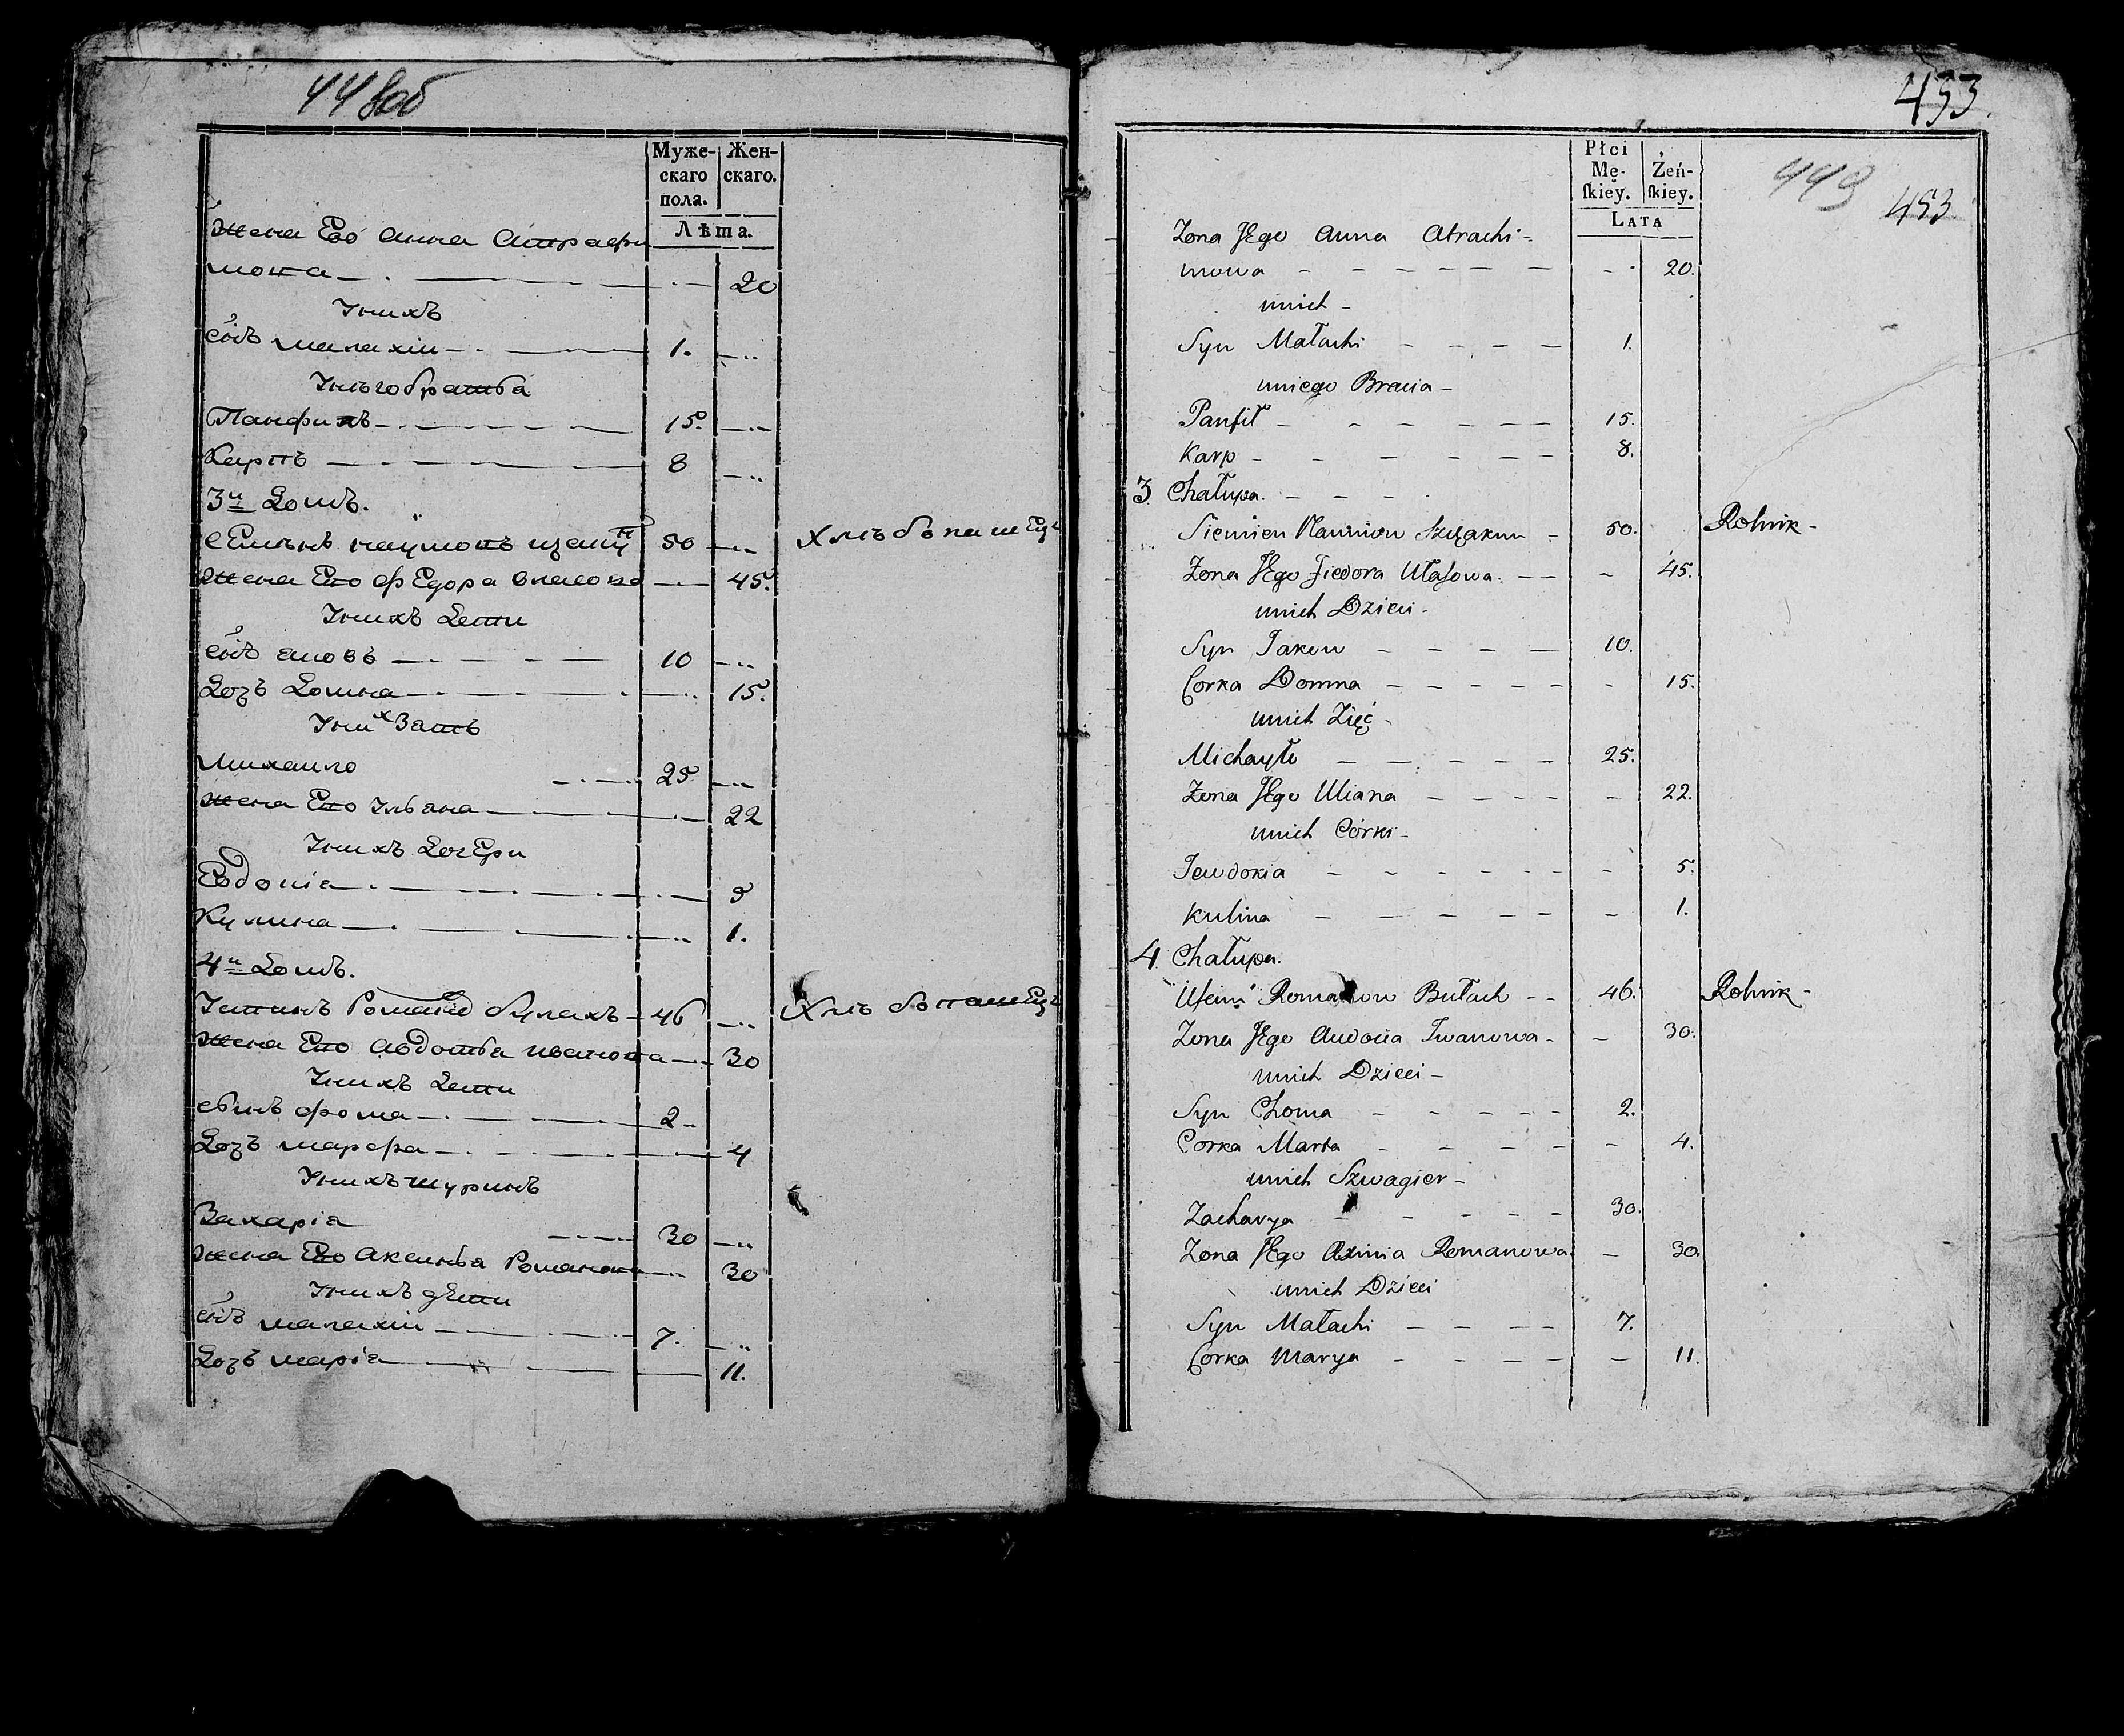 448об
Муже-
скаго
пола.
Жен-
скаго.
Лѣта.
жена Его анна
20
Унихъ
сн҃ъ малахiи 1.
Унего братья
Панфилъ 15.
Карпъ 8
3й Домъ.
семенъ наумовъ 50 Хлѣбопашец
жена Его федора власова 45.
Унихъ дети
сн҃ъ яковъ 10
Дочъ Домна 15.
Уних Зять
Михаило 25
жена Его Ульяна 22
Унихъ Дочери
Евдокiа 5
Кулина 1.
4й Домъ.
Романов булахъ 46 Хлѣбопашец
жена Его авдотья иванова 30
Унихъ дети
сынъ фома 2
Дочъ марфа 4
Унихъ шуринъ
Захарiа 30
жена Его Аксинья Романова 30
Унихъ дети
сн҃ъ малахiи 7.
Дочъ марiа 11.
453.
443
453
Płci
Mę-
ſkiey.
Żeń-
ſkiey.
LATA
Zona JEgo Anna Atrachi-
mowa 20.
unich
Syn Małachi 1.
uniego Bracia
Panfił 15.
Karp 8.
3 Chałupa.
Siemien Naumow 50. Rolnik
Zona JEgo Fiedora Ułaſowa. 45.
unich Dzieci
Syn Jakow 10.
Corka Domna 15.
unich Zięć
Michayło 25.
Zona JEgo Uliana 22.
unich Córki
Jewdokia 5.
Kulina 1.
4. Chałupa.
Romanow Bułach 46. Rolnik
Zona JEgo Awdocia Iwanowa 30.
unich Dzieci
Syn Choma 2.
Corka Marta 4.
unich Szwagier
Zacharya 30.
Zona JEgo Axinia Romanowa 30.
unich Dzieci
Syn Małachi 7.
Corka Marya 11.